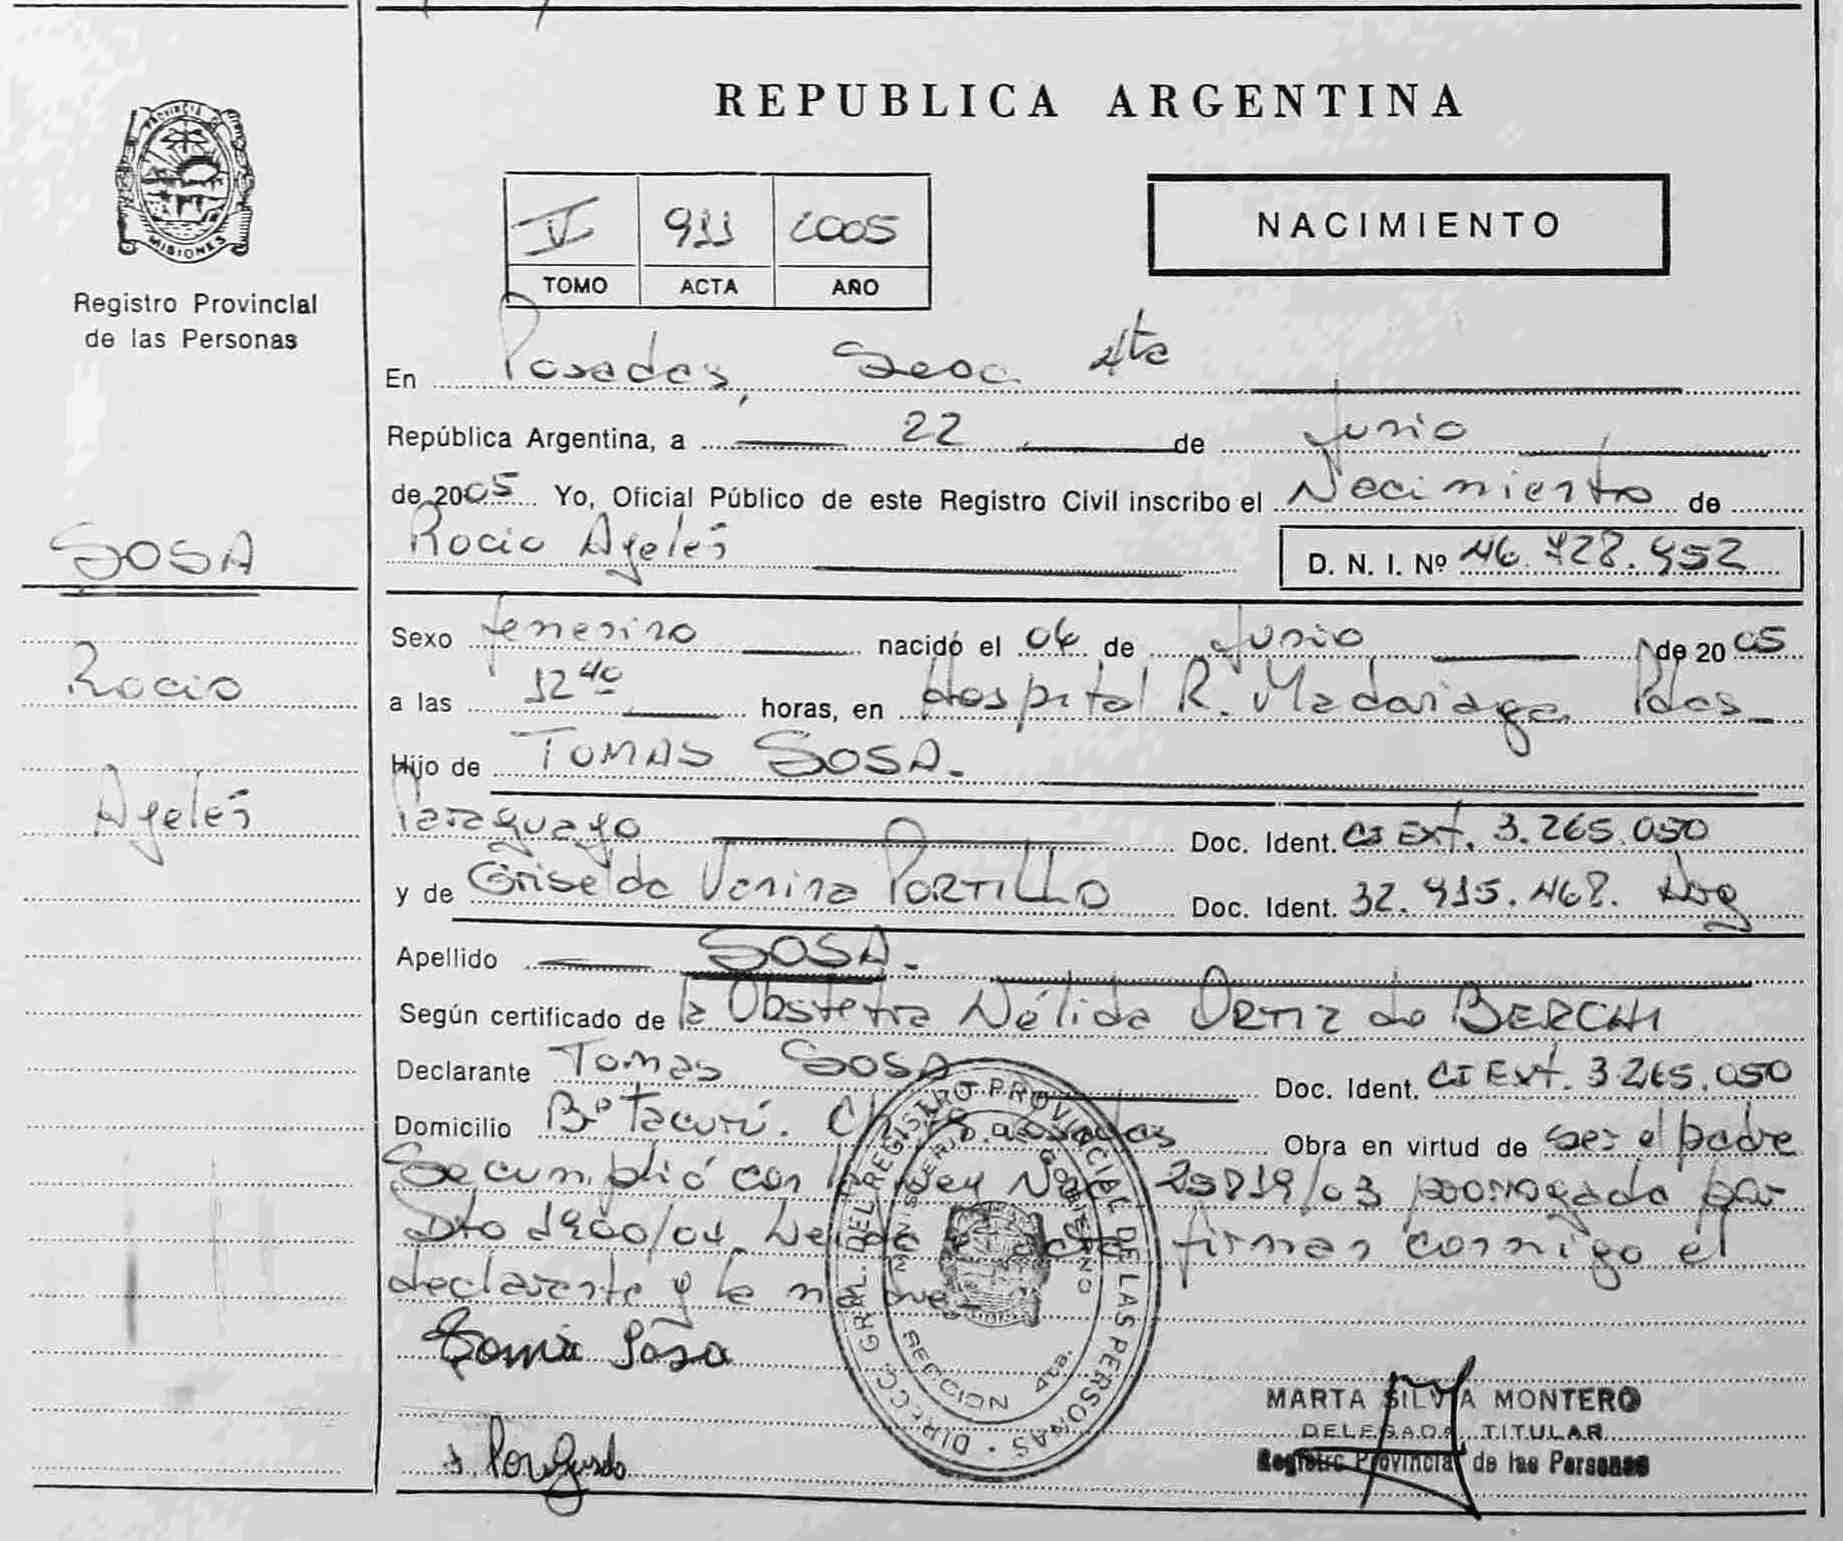 PROVINCIA DE
MISIONES
Registro Provincial
de las Personas
SOSA
Rocio
Ayelén
REPUBLICA ARGENTINA
V 911 2005
TOMO ACTA AÑO
NACIMIENTO
En Posadas, Secc. 4ta
República Argentina, a 22 de Junio
de 2005 Yo, Oficial Público de este Registro Civil inscribo el Nacimiento de
Rocio Ayelén D. N. I. Nº 46.728.952
Sexo femenino nacido el 06 de Junio de 2005
a las 12 40 horas, en Hospital R. Madariaga Pdas
Hijo de TOMAS SOSA.
Paraguayo Doc. Ident. CI Ext. 3.265.050
y de Griselda Vanina PORTILLO Doc. Ident. 32.915.468. Arg
Apellido SOSA.
Según certificado de la Obstetra Nélida ORTIZ de BERCHI
Declarante Tomas SOSA Doc. Ident. CI Ext. 3.265.050
Domicilio Bº Tacurú. Ch Posadas Obra en virtud de ser el padre
Se cumplió con Ley Nac 25819/03 prorrogada por
Dto 1900/04. Leida el acta firman conmigo el
declarante y la madre
DIRECC. GRAL. DEL REGISTRO PROVINCIAL DE LAS PERSONAS
GOBIERNO
SECCION 4ta.
MARTA SILVIA MONTERO
DELEGADA TITULAR
Registro Provincial de las Personas